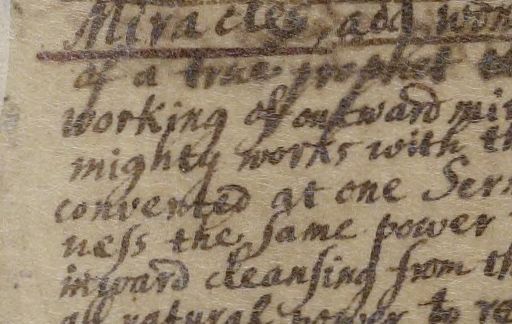 Miracles, and won
of a true prophet th
working of outward mir
mighty works with th
converted at one Serm
ness the same power
inward cleansing from th
all natural power to ra